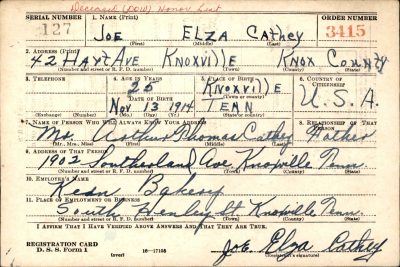 Deceased (POW) Honor List
SERIAL NUMBER 1. NAME (Print) ORDER NUMBER
127 JOE ELZA CATHEY 3415
(First) (Middle) (Last)
2. ADDRESS (Print)
42 HAYT AVE KNOXVILLE KNOX COUNTY
(Number and street or R. F. D. number) (Town) (County) (State)
3. TELEPHONE 4. AGE IN YEARS 5. PLACE OF BIRTH 6. COUNTRY OF CITIZENSHIP
25 KNOXVILLE
DATE OF BIRTH (Town or county) U.S.A.
NOV 13 1914 TENN
(Exchange) (Number) (Mo.) (Day) (Yr.) (State or country)
7. NAME OF PERSON WHO WILL ALWAYS KNOW YOUR ADDRESS 8. RELATIONSHIP OF THAT PERSON
Mr. Arthur Thomas Cathey Father
(Mr., Mrs., Miss) (First) (Middle) (Last)
9. ADDRESS OF THAT PERSON
1902 Southerland Ave Knoxville Tenn
(Number and street or R. F. D. number) (Town) (County) (State)
10. EMPLOYER'S NAME
Kern Bakery
11. PLACE OF EMPLOYMENT OR BUSINESS
South Henley St Knoxville Tenn.
(Number and street or R. F. D. number) (Town) (County) (State)
I AFFIRM THAT I HAVE VERIFIED ABOVE ANSWERS AND THAT THEY ARE TRUE.
REGISTRATION CARD
D. S. S. Form 1 (over) 16—17105 Joe Elza Cathey
(Registrant's signature)